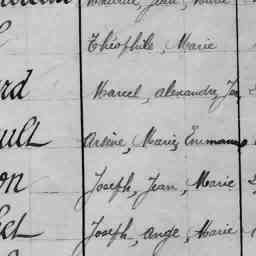 Maurice, Jean, Marie
Théophile, Marie
ard Marcel, alexandre, Je
ult Arsène, Marie, Emmanu
on Joseph, Jean, Marie
et Joseph, ange, Marie